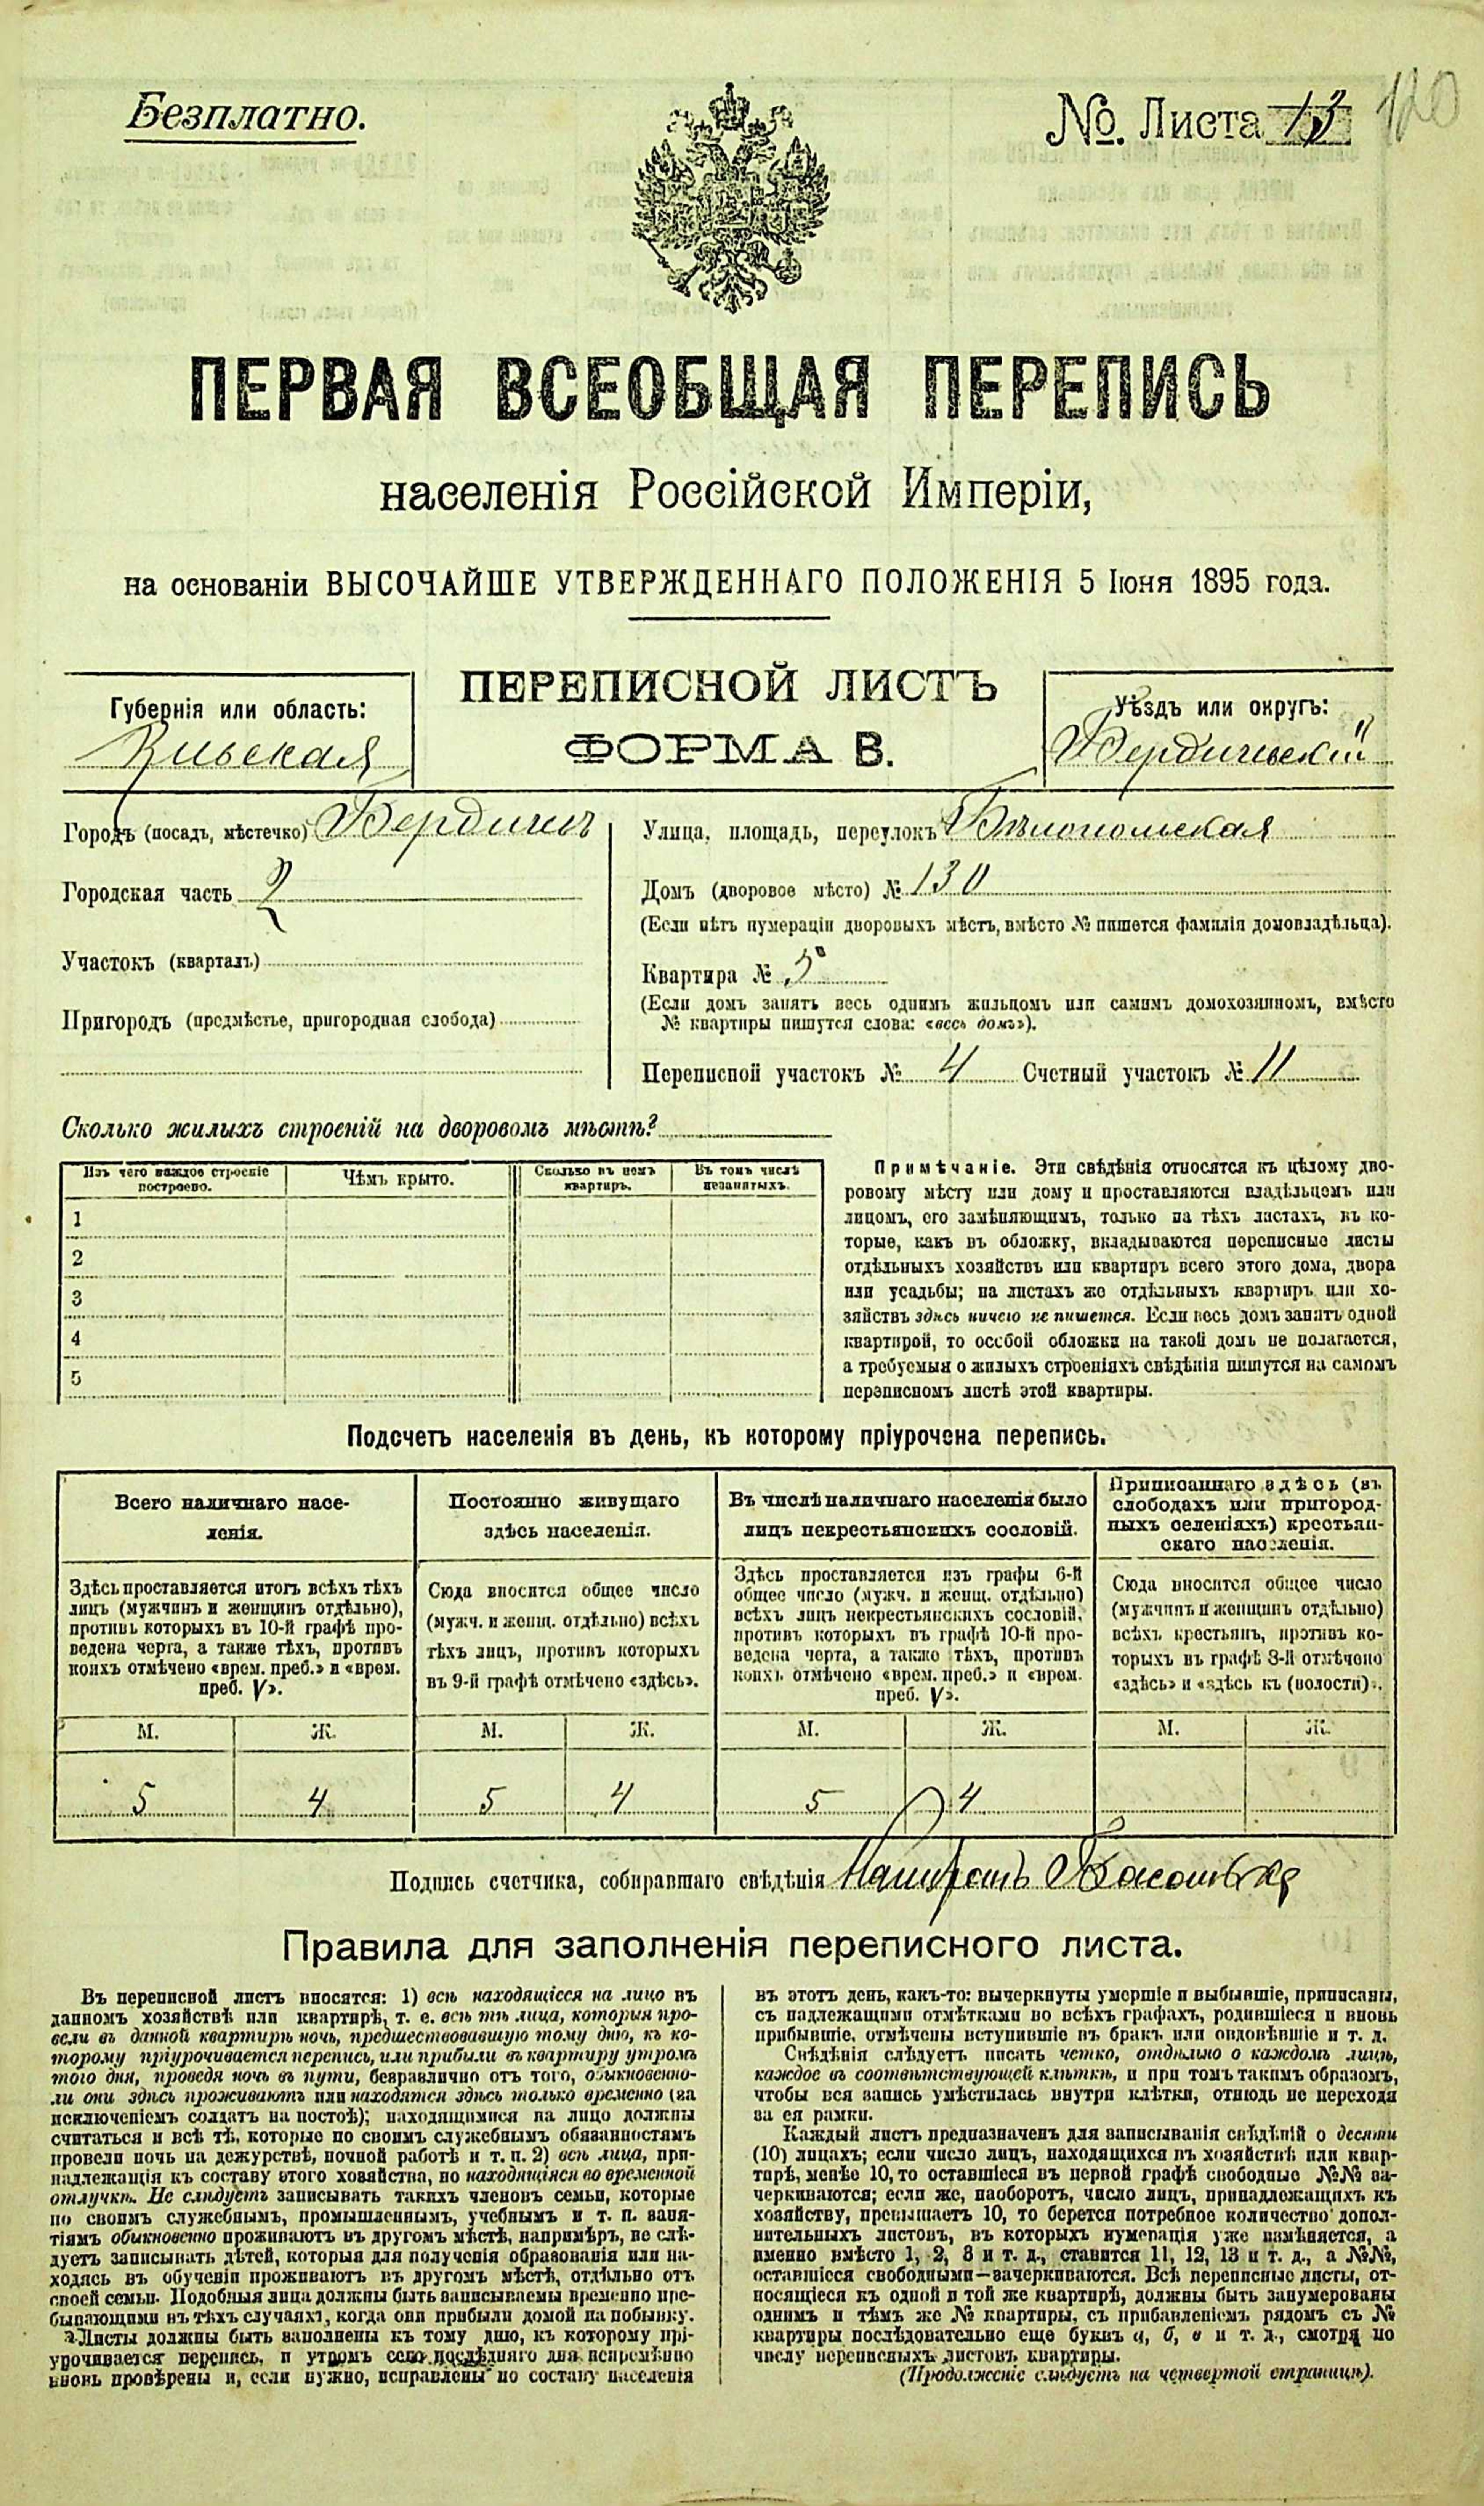 Безплатно.
№. Листа 13
120
ПЕРВАЯ ВСЕОБЩАЯ ПЕРЕПИСЬ
населенія Россійской Имперіи,
на основаніи ВЫСОЧАЙШЕ УТВЕРЖДЕННАГО ПОЛОЖЕНІЯ 5 Іюня 1895 года.
ПЕРЕПИСНОЙ ЛИСТЪ
ФОРМА В.
Губернія или область:
Кіевская
Уѣздъ или округъ:
Бердичевскій
Городъ (посадъ, мѣстечко) Бердичевъ
Городская часть 2
Участокъ (кварталъ)
Пригородъ (предмѣстье, пригородная слобода)
Улица, площадь, переулокъ Бѣлопольская
Домъ (дворовое мѣсто) № 130
(Если нѣтъ нумераціи дворовыхъ мѣстъ, вмѣсто № пишется фамилія домовладѣльца).
Квартира № 5
(Если домъ занятъ весь однимъ жильцомъ или самимъ домохозяиномъ, вмѣсто
№ квартиры пишутся слова: «весь домъ»).
Переписной участокъ № 4 Счетный участокъ № 11
Сколько жилыхъ строеній на дворовомъ мѣстѣ?
Изъ чего каждое строеніе
построено.
Чѣмъ крыто.
Сколько въ немъ
квартиръ.
Въ томъ числѣ
незанятыхъ.
1
2
3
4
5
Примѣчаніе. Эти свѣдѣнія относятся къ цѣлому дво-
ровому мѣсту или дому и проставляются владѣльцемъ или
лицомъ, его замѣняющимъ, только на тѣхъ листахъ, въ ко-
торые, какъ въ обложку, вкладываются переписные листы
отдѣльныхъ хозяйствъ или квартиръ всего этого дома, двора
или усадьбы; на листахъ же отдѣльныхъ квартиръ или хо-
зяйствъ здѣсь ничего не пишется. Если весь домъ занятъ одной
квартирой, то особой обложки на такой домъ не полагается,
а требуемыя о жилыхъ строеніяхъ свѣдѣнія пишутся на самомъ
переписномъ листѣ этой квартиры.
Подсчетъ населенія въ день, къ которому пріурочена перепись.
Всего наличнаго насе-
ленія.
Здѣсь проставляется итогъ всѣхъ тѣхъ
лицъ (мужчинъ и женщинъ отдѣльно),
противъ которыхъ въ 10-й графѣ про-
ведена черта, а также тѣхъ, противъ
коихъ отмѣчено «врем. преб.» и «врем.
преб. V».
Постоянно живущаго
здѣсь населенія.
Сюда вносится общее число
(мужч. и женщ. отдѣльно) всѣхъ
тѣхъ лицъ, противъ которыхъ
въ 9-й графѣ отмѣчено «здѣсь».
Въ числѣ наличнаго населенія было
лицъ некрестьянскихъ сословій.
Здѣсь проставляется изъ графы 6-й
общее число (мужч. и женщ. отдѣльно)
всѣхъ лицъ некрестьянскихъ сословій,
противъ которыхъ въ графѣ 10-й про-
ведена черта, а также тѣхъ, противъ
коихъ отмѣчено «врем. преб.» и «врем.
преб. V».
Приписаннаго здѣсь (въ
слободахъ или пригород-
ныхъ селеніяхъ) крестьян-
скаго населенія.
Сюда вносится общее число
(мужчинъ и женщинъ отдѣльно)
всѣхъ крестьянъ, противъ ко-
торыхъ въ графѣ 8-й отмѣчено
«здѣсь» и «здѣсь къ (волости)».
М. Ж. М. Ж. М. Ж. М. Ж.
5 4 5 4 5 4
Подпись счетчика, собиравшаго свѣдѣнія
Правила для заполненія переписного листа.
Въ переписной листъ вносятся: 1) всѣ находящіеся на лицо въ
данномъ хозяйствѣ или квартирѣ, т. е. всѣ тѣ лица, которыя про-
вели въ данной квартирѣ ночь, предшествовавшую тому дню, къ ко-
торому пріурочивается перепись, или прибыли въ квартиру утромъ
того дня, проведя ночь въ пути, безразлично отъ того, обыкновенно-
ли они здѣсь проживаютъ или находятся здѣсь только временно (за
исключеніемъ солдатъ на постоѣ); находящимися на лицо должны
считаться и всѣ тѣ, которые по своимъ служебнымъ обязанностямъ
провели ночь на дежурствѣ, ночной работѣ и т. п. 2) всѣ лица, при-
надлежащія къ составу этого хозяйства, но находящіяся во временной
отлучкѣ. Не слѣдуетъ записывать такихъ членовъ семьи, которые
по своимъ служебнымъ, промышленнымъ, учебнымъ и т. п. заня-
тіямъ обыкновенно проживаютъ въ другомъ мѣстѣ, напримѣръ, не слѣ-
дуетъ записывать дѣтей, которыя для полученія образованія или на-
ходясь въ обученіи проживаютъ въ другомъ мѣстѣ, отдѣльно отъ
своей семьи. Подобныя лица должны быть записываемы временно пре-
бывающими въ тѣхъ случаяхъ, когда они прибыли домой на побывку.
Листы должны быть заполнены къ тому дню, къ которому прі-
урочивается перепись, и утромъ сего послѣдняго дня непремѣнно
вновь провѣрены и, если нужно, исправлены по составу населенія
въ этотъ день, какъ-то: вычеркнуты умершіе и выбывшіе, приписаны,
съ надлежащими отмѣтками во всѣхъ графахъ, родившіеся и вновь
прибывшіе, отмѣчены вступившіе въ бракъ или овдовѣвшіе и т. д.
Свѣдѣнія слѣдуетъ писать четко, отдѣльно о каждомъ лицѣ,
каждое въ соотвѣтствующей клѣткѣ, и при томъ такимъ образомъ,
чтобы вся запись умѣстилась внутри клѣтки, отнюдь не переходя
за ея рамки.
Каждый листъ предназначенъ для записыванія свѣдѣній о десяти
(10) лицахъ; если число лицъ, находящихся въ хозяйствѣ или квар-
тирѣ, менѣе 10, то оставшіеся въ первой графѣ свободные №№ за-
черкиваются; если же, наоборотъ, число лицъ, принадлежащихъ къ
хозяйству, превышаетъ 10, то берется потребное количество допол-
нительныхъ листовъ, въ которыхъ нумерація уже измѣняется, а
именно вмѣсто 1, 2, 3 и т. д., ставится 11, 12, 13 и т. д., а №№,
оставшіеся свободными—зачеркиваются. Всѣ переписные листы, от-
носящіеся къ одной и той же квартирѣ, должны быть занумерованы
однимъ и тѣмъ же № квартиры, съ прибавленіемъ рядомъ съ №
квартиры послѣдовательно еще буквъ а, б, в и т. д., смотря по
числу переписныхъ листовъ квартиры.
(Продолженіе слѣдуетъ на четвертой страницѣ).